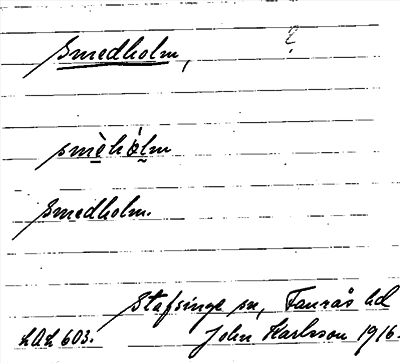 Smedholm, ?
smèhólm
Smedholm.
Stafsinge sn, Faurås hd
LAL 603. John Karlsson 1916.